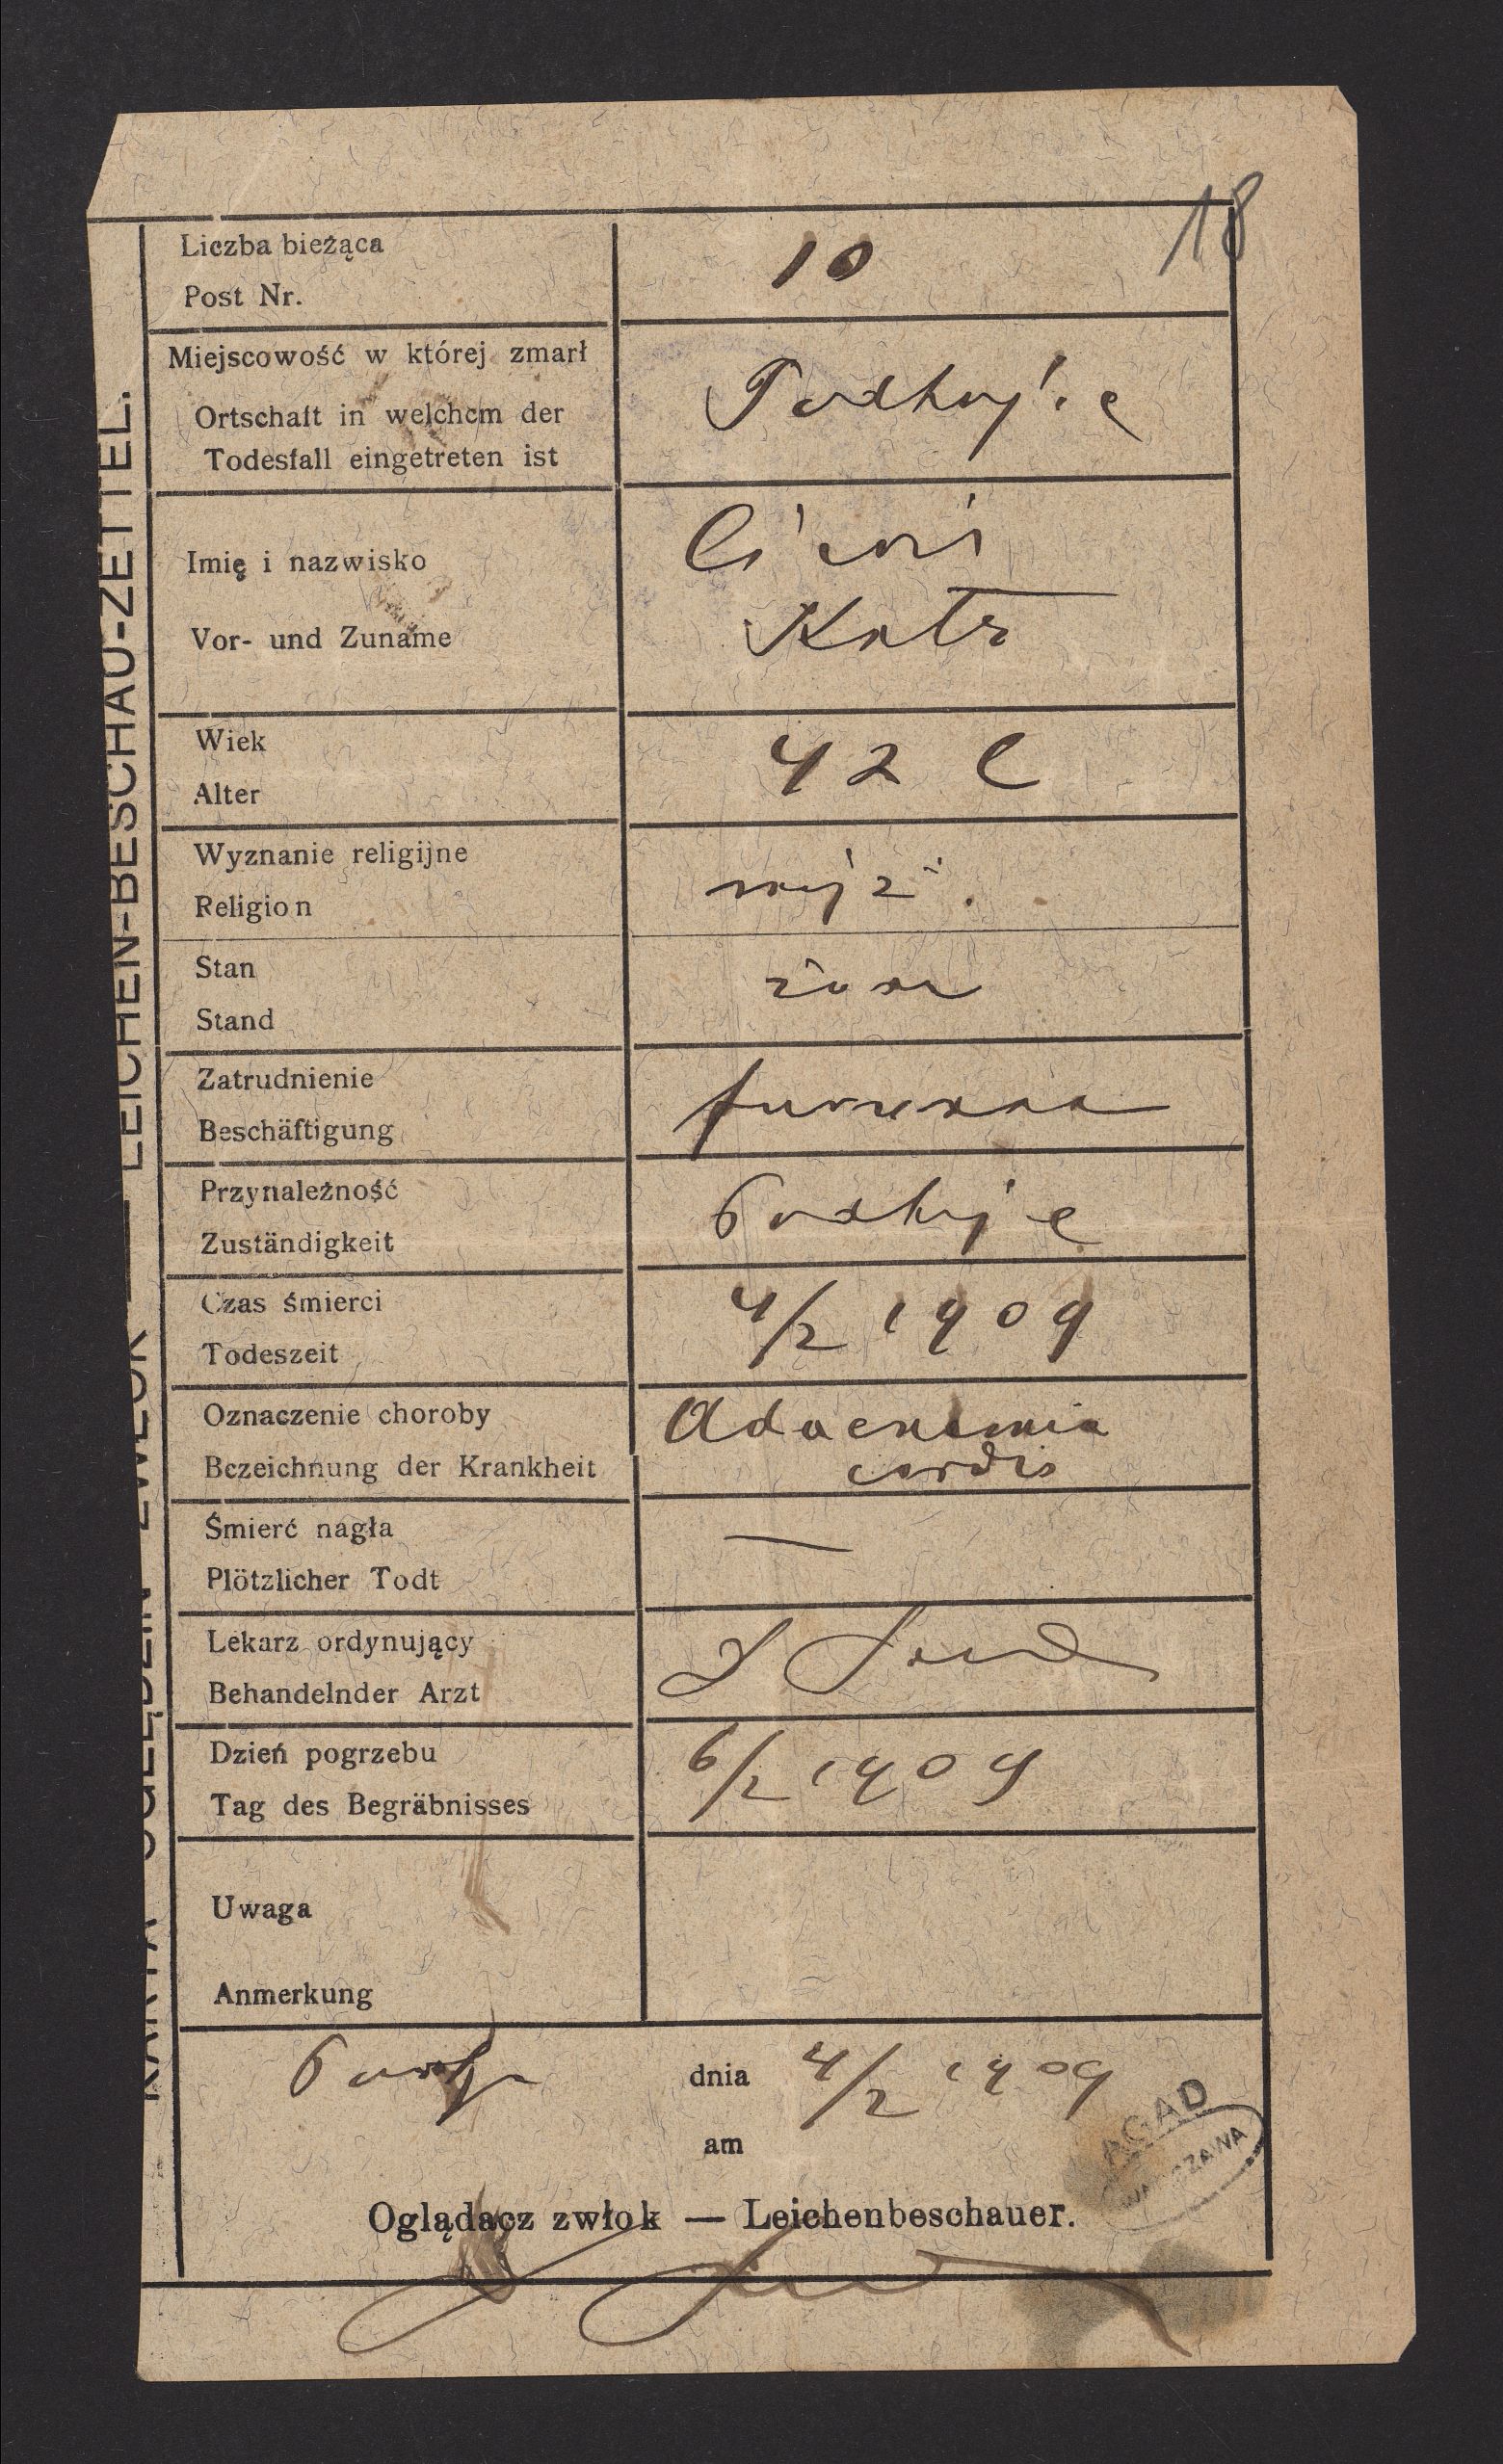 18
Liczba bieżąca
Post Nr.
10
Miejscowość w której zmarł
Ortschaft in welchem der
Todesfall eingetreten ist
Podhajce
Imię i nazwisko
Vor- und Zuname
Katz
Wiek
Alter
42 l
Wyznanie religijne
Religion
mojż.
Stan
Stand
żona
Zatrudnienie
Beschäftigung
furmana
Przynależność
Zuständigkeit
Podhajce
Czas śmierci
Todeszeit
4/2 1909
Oznaczenie choroby
Bezeichnung der Krankheit
cordis
Śmierć nagła
Plötzlicher Todt
—
Lekarz ordynujący
Behandelnder Arzt
Dzień pogrzebu
Tag des Begräbnisses
6/2 1909
Uwaga
Anmerkung
dnia 4/2 1909
am
Oglądacz zwłok — Leichenbeschauer.
KARTA OGLĘDZIN ZWŁOK — LEICHEN-BESCHAU-ZETTEL.
AGAD
WARSZAWA